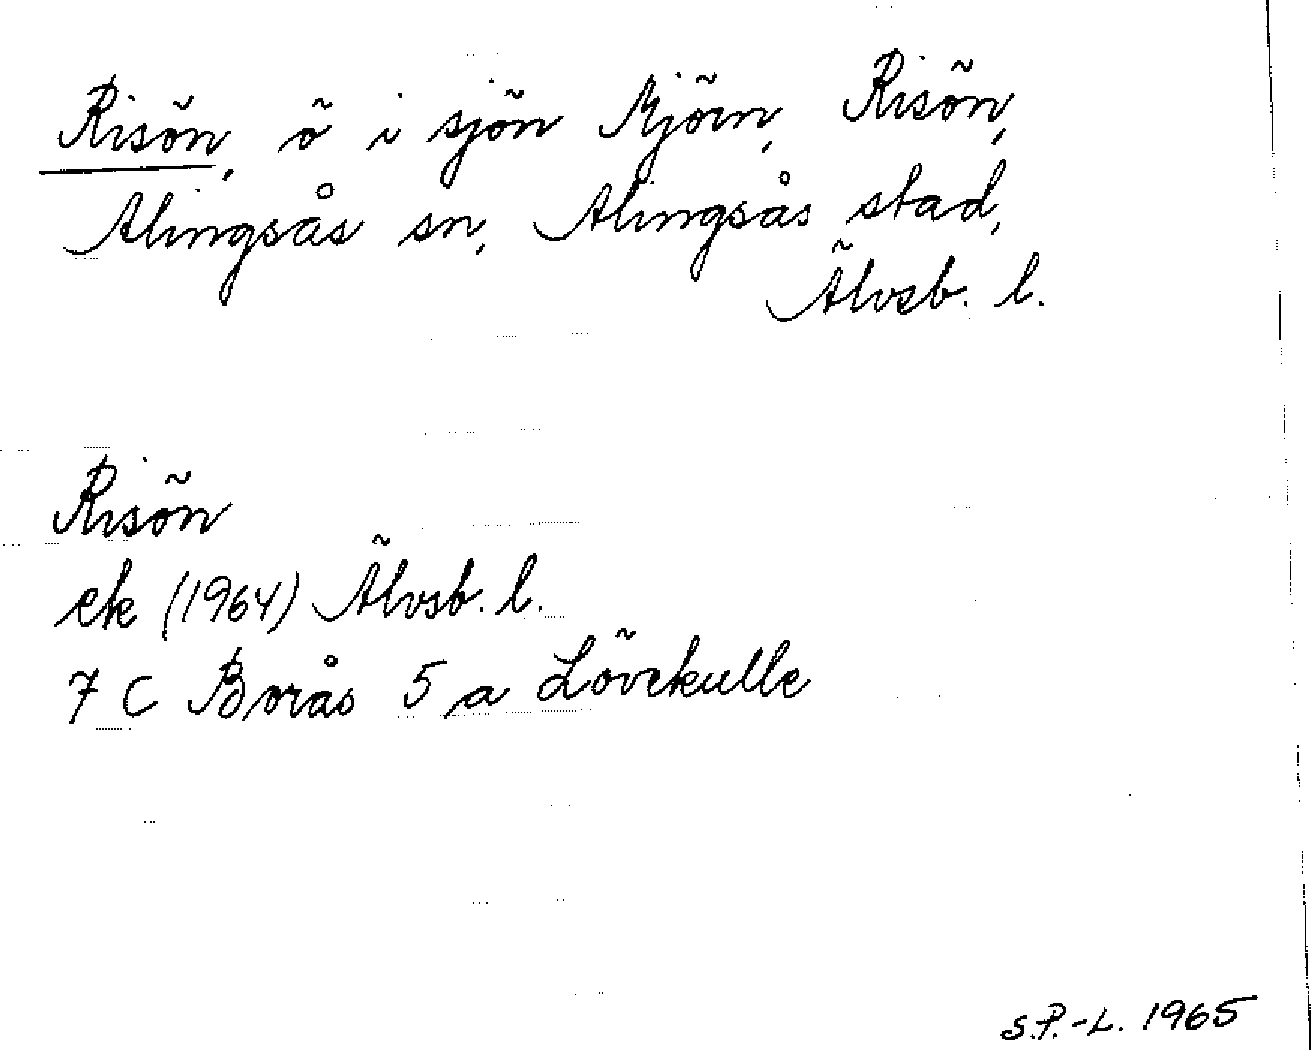 Risön, ö i sjön Mjörn, Risön,
Alingsås sn, Alingsås stad,
Älvsb. l.
Risön
ek (1964) Älvsb. l.
7 C Borås 5 a Lövekulle
S.P.-L. 1965